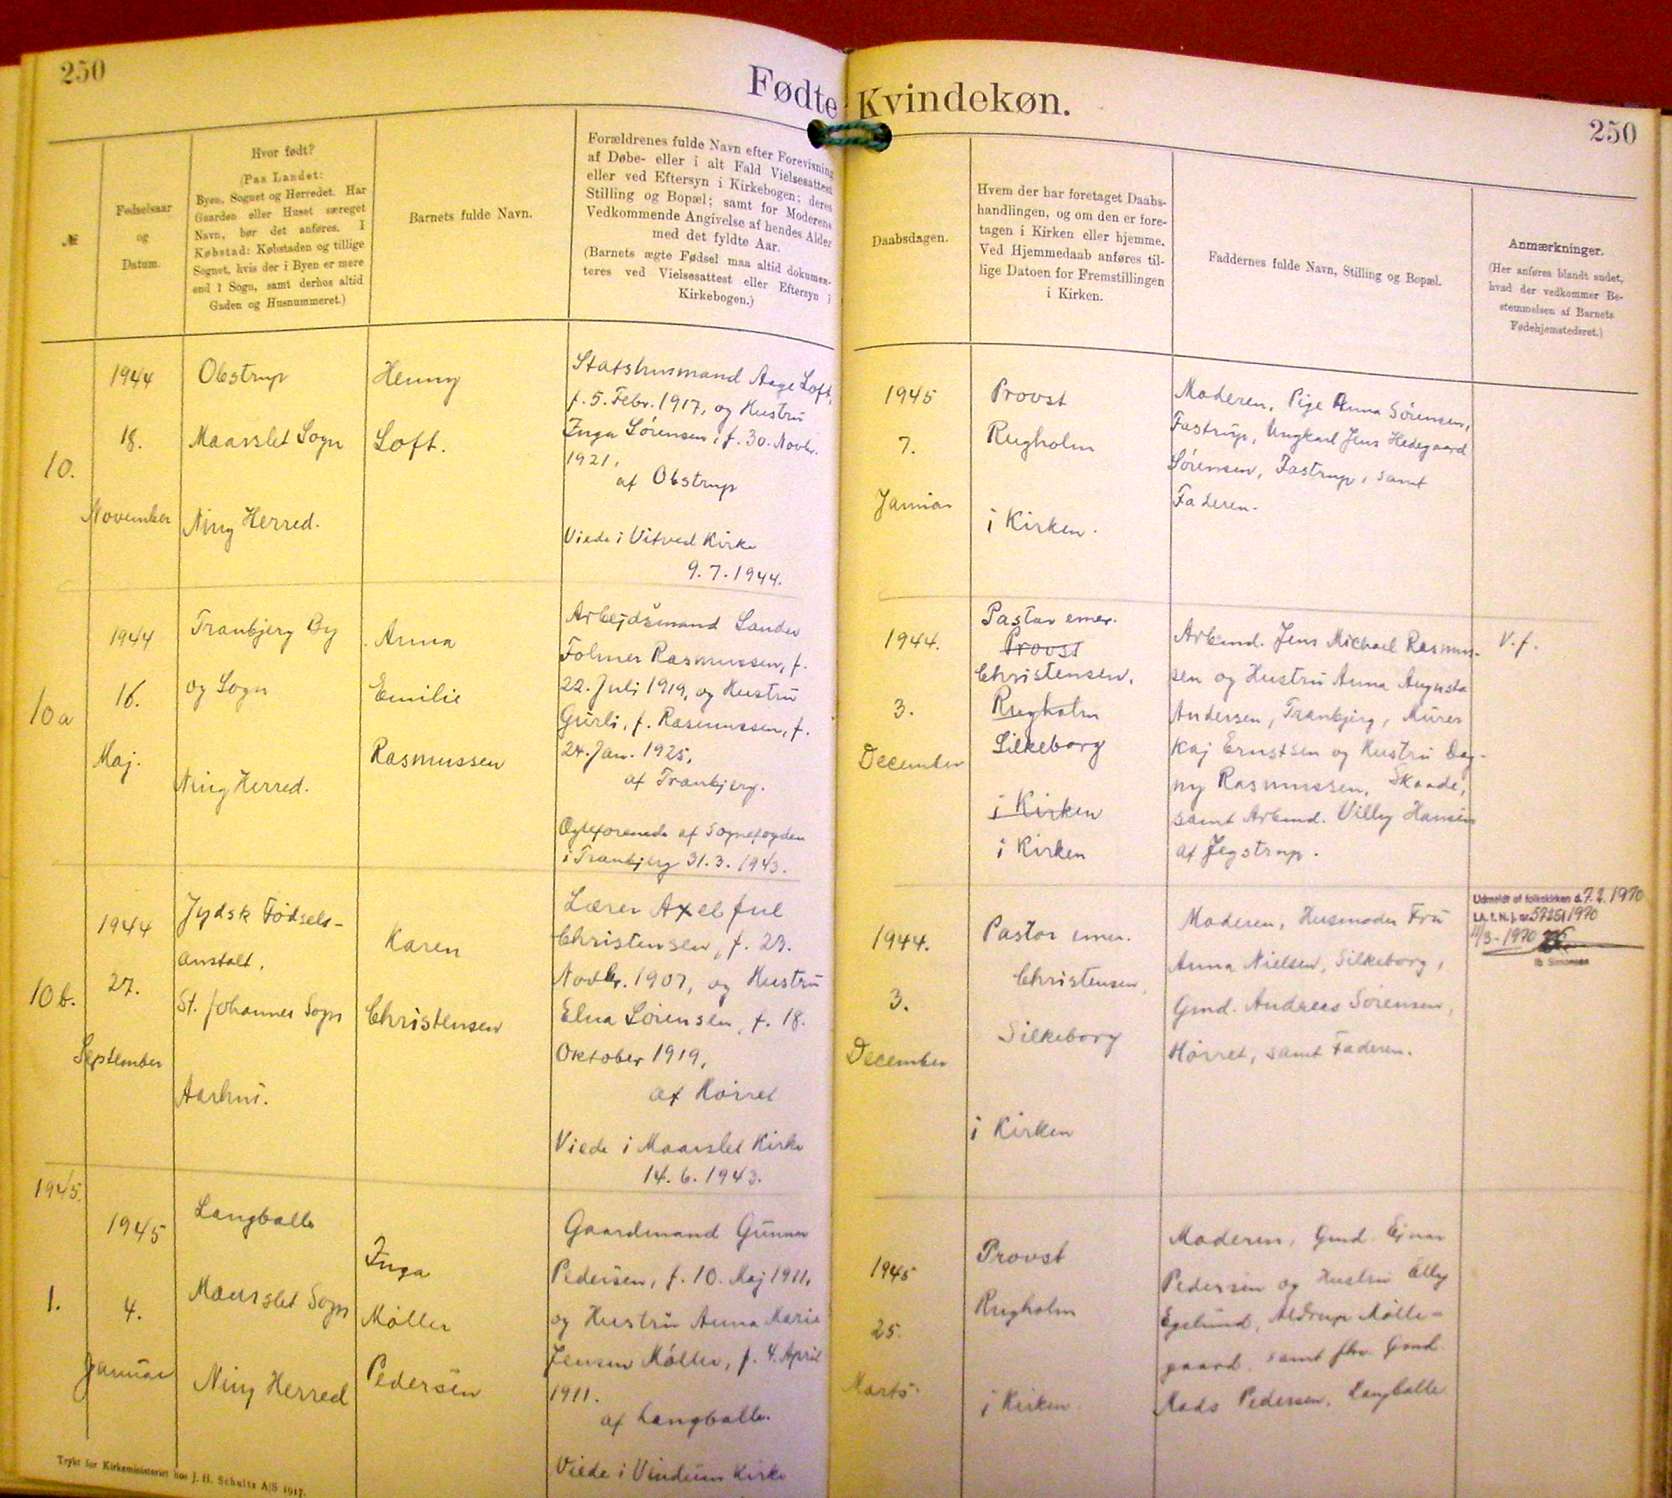 250
Fødte Kvindekøn.
250
№
Fødselsaar
og
Datum.
Hvor født?
(Paa Landet:
Byen, Sognet og Herredet. Har
Gaarden eller Huset særeget
Navn, bør det anføres. I
Købstad: Købstaden og tillige
Sognet, hvis der i Byen er mere
end 1 Sogn, samt derhos altid
Gaden og Husnummeret.)
Barnets fulde Navn.
Forældrenes fulde Navn efter Forevisning
af Døbe- eller i alt Fald Vielsesattest
eller ved Eftersyn i Kirkebogen; deres
Stilling og Bopæl; samt for Moderens
Vedkommende Angivelse af hendes Alder
med det fyldte Aar.
(Barnets ægte Fødsel maa altid dokumen-
teres ved Vielsesattest eller Eftersyn i
Kirkebogen.)
Daabsdagen.
Hvem der har foretaget Daabs-
handlingen, og om den er fore-
tagen i Kirken eller hjemme.
Ved Hjemmedaab anføres til-
lige Datoen for Fremstillingen
i Kirken.
Faddernes fulde Navn, Stilling og Bopæl.
Anmærkninger.
(Her anføres blandt andet,
hvad der vedkommer Be-
stemmelsen af Barnets
Fødehjemstederet.)
10.
1944
18.
November
Obstrup
Maarslet Sogn
Ning Herred.
Henny
Loft.
Statshusmand Aage Loft,
f. 5. Febr. 1917, og Hustru
Inga Sørensen, f. 30. Novbr.
1921,
af Obstrup
Viede i Vitved Kirke
9.7.1944.
1945
7.
Januar
Provst
Rugholm
i Kirken.
Moderen, Pige Anna Sørensen,
Fastrup, Ungkarl Jens Hedegaard
Sørensen, Fastrup, samt
Faderen.
10a
1944
16.
Maj.
Tranbjerg By
og Sogn
Ning Herred.
Anna
Emilie
Rasmussen
Arbejdsmand Sander
Folmer Rasmussen, f.
22. Juli 1919, og Hustru
Gurli, f. Rasmussen, f.
24. Jan. 1925,
af Tranbjerg.
Ægteforenede af Sognefogden
i Tranbjerg 31.3.1943.
1944.
3.
December
Pastor emer.
Provst
Christensen,
Rugholm
Silkeborg
i Kirken
i Kirken
Arbmd. Jens Michael Rasmus-
sen og Hustru Anna Augusta
Andersen, Tranbjerg, Murer
Kaj Ernstsen og Hustru Dag-
ny Rasmussen, Skaade,
samt Arbmd. Villy Hansen
af Jegstrup.
V.f.
10b.
1944
27.
September
Jydsk Fødsels-
anstalt,
St. Johannes Sogn
Aarhus.
Karen
Christensen
Lærer Axel Juul
Christensen, f. 23.
Novbr. 1907, og Hustru
Elna Sørensen, f. 18.
Oktober 1919,
af Hørret
Viede i Maarslet Kirke
14.6.1943.
1944.
3.
December
Pastor emer.
Christensen,
Silkeborg
i Kirken
Moderen, Husmoder Fru
Anna Nielsen, Silkeborg,
Gmd. Andreas Sørensen,
Hørret, samt Faderen.
Udmeldt af folkekirken d. 7.2.1970
1970
11/3-1970
Ib Simonsen
1945.
1.
1945
4.
Januar
Langballe
Maarslet Sogn
Ning Herred
Inga
Møller
Pedersen
Gaardmand Gunnar
Pedersen, f. 10. Maj 1911,
og Hustru Anna Marie
Jensen Møller, f. 4. April
1911.
af Langballe.
Viede i Vindum Kirke
1945
25.
Marts.
Provst
Rugholm
i Kirken.
Moderen, Gmd. Ejnar
Pedersen og Hustru Elly
Egelund, Aldrup Mølle-
gaard, samt fhv. Gmd.
Mads Pedersen, Langballe
Trykt for Kirkeministeriet hos J. H. Schultz A/S 1917.